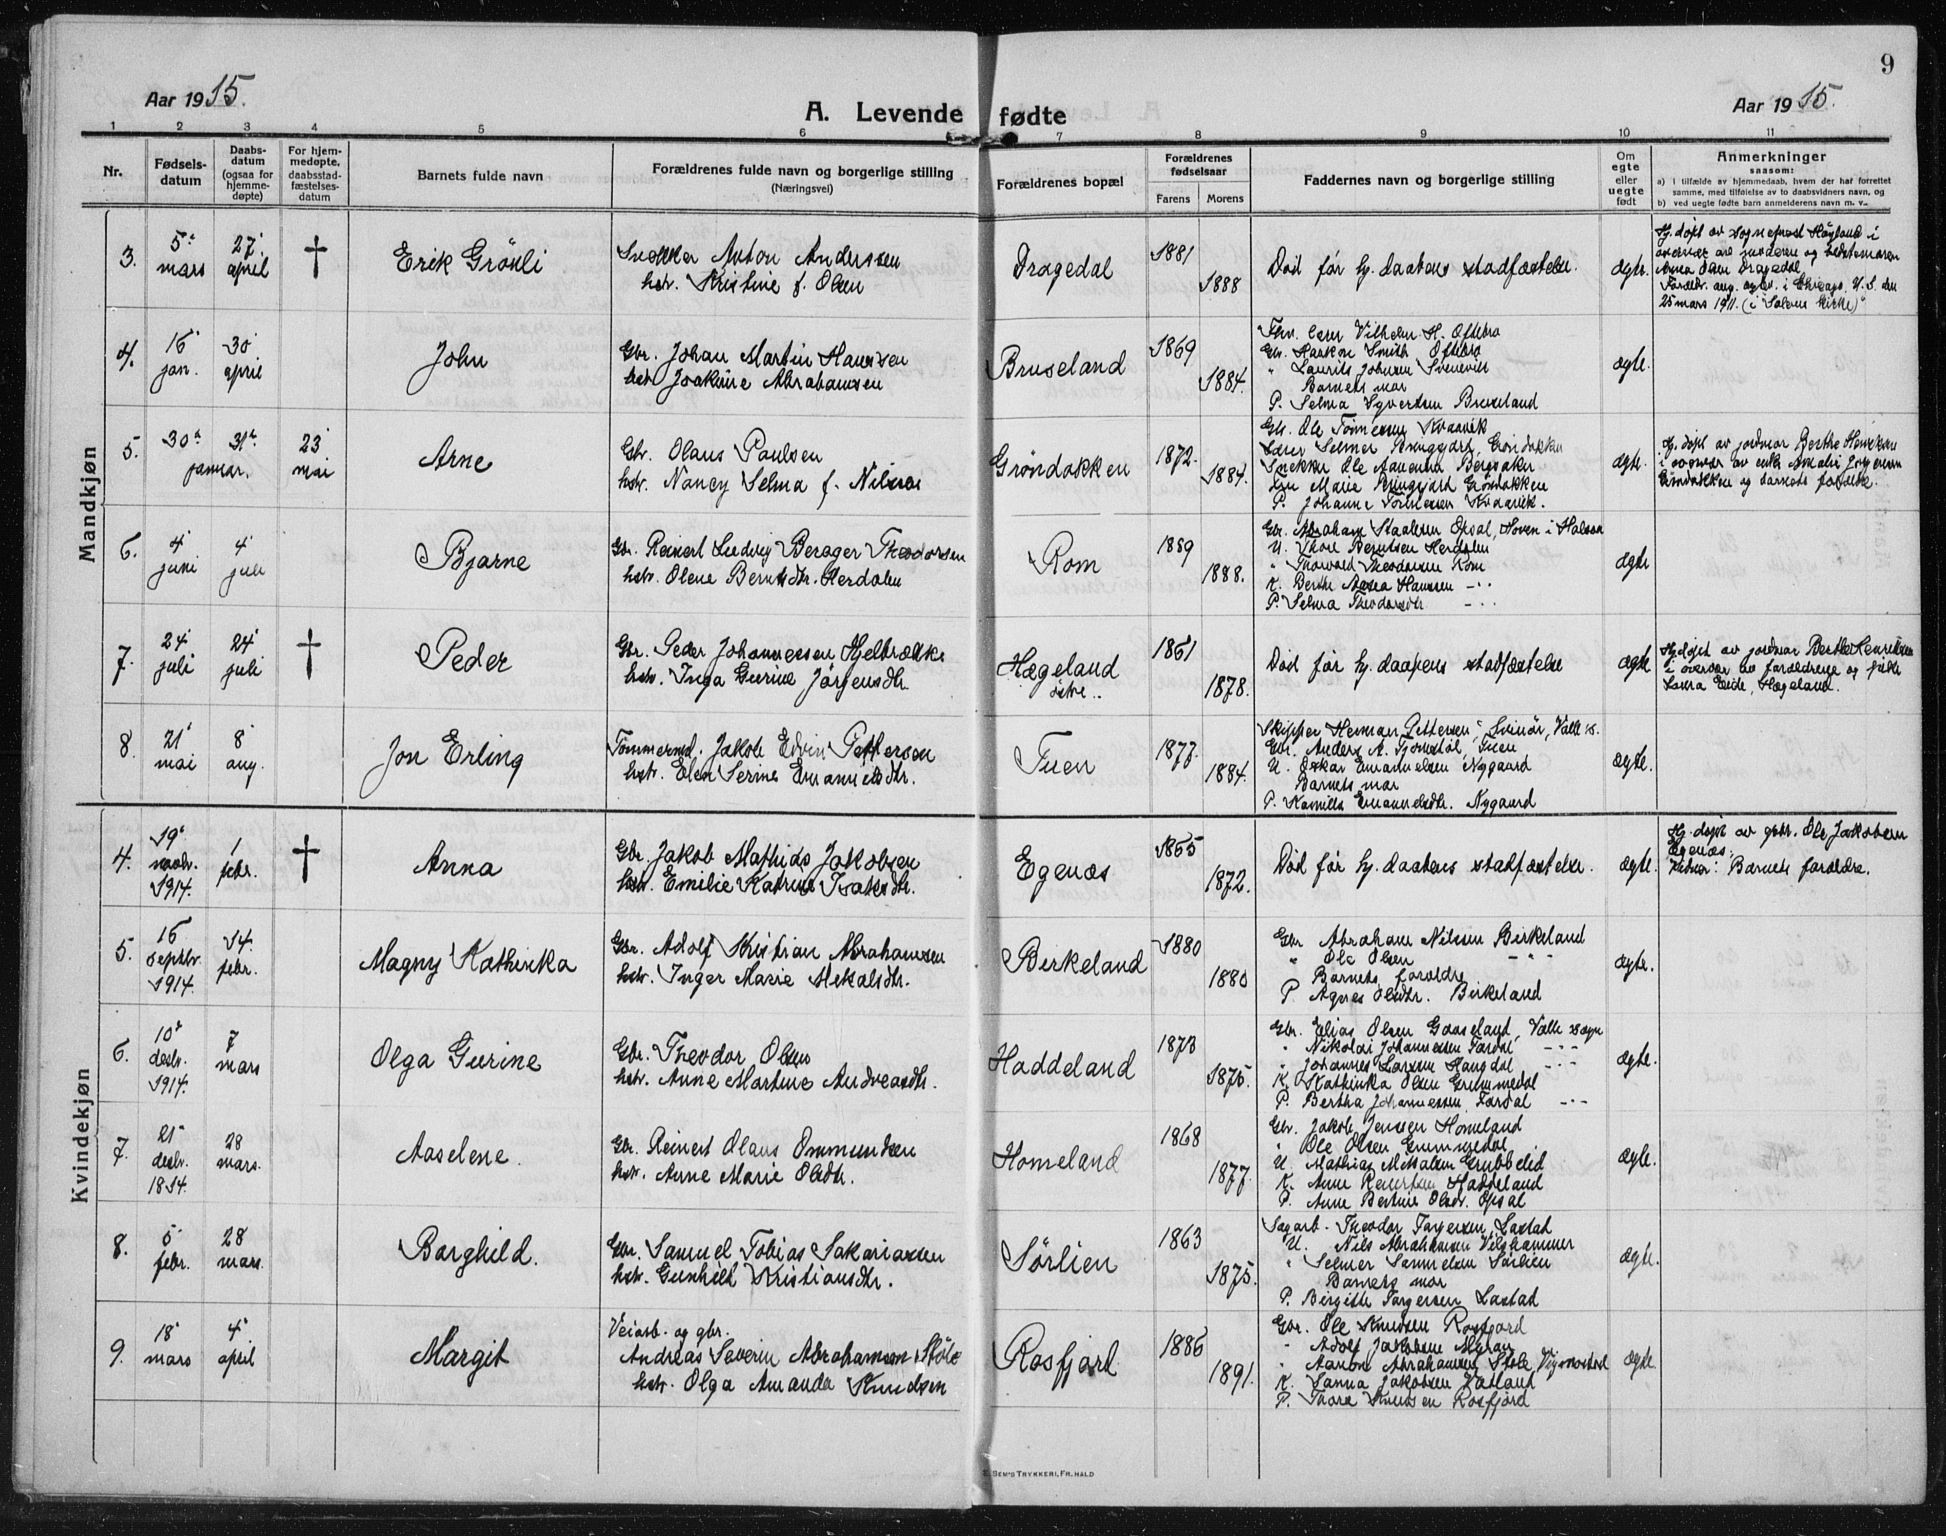 9
Aar 1915.
A. Levende fødte
Aar 1915.
1 2 3 4 5 6 7 8 9 10 11
Nr.
Fødsels-
datum
Daabs-
datum
(ogsaa for
hjemme-
døpte)
For hjem-
medøpte,
daabsstad-
fæstelses-
datum
Barnets fulde navn
Forældrenes fulde navn og borgerlige stilling
(Næringsvei)
Forældrenes bopæl
Forældrenes
fødselsaar
Farens Morens
Faddernes navn og borgerlige stilling
Om
egte
eller
uegte
født
Anmerkninger
saasom:
a) i tilfælde av hjemmedaab, hvem der har forrettet
samme, med tilføielse av to daabsvidners navn, og
b) ved uegte fødte barn anmelderens navn m. v.
Mandkjøn
3. 5 mars 27 april † Erik Grönli
Snekker Anton Anderssen
hstr. Kristine f. Olsen
Dragedal 1881 1888
Död før hj. daabens stadfæstelse. ægte.
Hj. døpt av sogneprest Høyland i
overvær av
Anna Olsen Dragedal
i Chicago, U. S. den
25 mars 1911. (i "Salems Kirke)"
4. 16 jan. 30 april John
Gbr. Johan Martin Hanssen
hstr. Joakine Abrahamsen
Bruseland 1869 1884.
Vilhelm H. Oftebro
Gbr. Haakon Smith Oftebro
" Laurits Johnsen Svenevik
Barnets mor
P. Selma Syvertsen Bruseland
ægte.
5. 30 31 januar. 23 mai Arne
Gbr. Olaus Paulsen
hstr. Nancy Selma f. Nilsen
Grøndokken 1872. 1884.
Gbr. Ole Tönnessen Kvaavik
Selmer Ringgård, Gröndokken
Snekker Ole Bergsaker
Marie Ringgjard Gröndokken
P. Johanne Tönnessen Kvaavik.
ægte.
Hj. døpt av jordmor Berthe Henriksen
i overvær av enke Amalie Jörgensen
Gröndokken og barnets forældre.
6. 4 juni 4 juli Bjarne
Gbr. Reinert Ludvig Berager Theodorsen
hstr. Olene Berntsdtr. Herdalen
Rom 1889 1888.
Gbr. Abraham Staalesen Opsal, Hoven i Halsaa
U. Thore Berntsen Herdalen
" Thorvald Theodorsen Rom
K. Berthe Hanssen - " -
P. Selma Theodorsdtr - " -
ægte
7. 24 juli 24 juli † Peder
Gbr. Peder Johannessen Hjelbrække
hstr. Inga Gurine Jörgensdtr.
Hægeland østre. 1861 1878.
Död før hj. daapens stadfæstelse
ægte
Hj. døpt av jordmor Berthe Henriksen
i overvær av forældrene og
Laura Eide, Hægeland.
8. 21 mai 8 aug. Jon Erling
Tömmermd. Jakob Edvin Pettersen
hstr. Elen Serine Emanuelsdtr.
Tuen 1877. 1884.
Skipper Herman Pettersen, Svinör, Valle s.
Gbr. Anders A. Tjomstöl, Tuen
U. Oskar Emanuelsen Nygaard
Barnets mor
P. Kamilla Emanuelsdtr. Nygaard
ægte.
Kvindekjøn
4. 19 novbr. 1914. 1 febr. † Anna
Gbr. Jakob Mathias Jakobsen
hstr. Emilie Katrine Isaksdtr.
Egenæs 1865 1872.
Död før hj. daabens stadfæstelse.
ægte.
Hj. døpt av gbr. Ole Jakobsen
Egenæs.
Vidner: Barnets forældre.
5. 16 septbr. 1914. 14. febr. Magny Kathinka
Gbr. Adolf Kristian Abrahamsen
hstr. Inger Marie Mekalsdtr.
Birkeland 1880 1880
Gbr Abraham Nilsen Birkeland
" Ole Olsen - " -
Barnets forældre
P Agnes Olsdtr. Birkeland
ægte.
6. 10 desbr. 1914. 7 mars Olga Gurine
Gbr. Theodor Olsen
hstr. Anne Martine Andreasdtr.
Haddeland 1873 1875.
Gbr. Elias Olsen Gaaseland, Valle sogn
" Nikolai Johannessen Fardal - " -
" Johannes Larsen Haugdal - " -
K. Kathinka Olsen Grummedal
P. Bertha Johannessen Fardal - " -
ægte.
7. 21 desbr. 1814. 28 mars. Aaselene.
Gbr. Reinert Olaus Ommundsen
hstr. Anne Marie Olsdtr.
Homeland 1868 1877.
Gbr. Jakob Jenssen Homeland
" Ole Olsen Grummedal
U. Mathias Grubbelid
K. Anne Reiersen Haddeland
P. Anne Bertine Olsdr. Opsal
ægte.
8. 5 febr. 28 mars. Borghild.
Gbr. Samuel Tobias Sakariassen
hstr. Gunhild Kristiansdtr.
Sørlien 1863 1875.
Sagarb. Theodor Torgersen, Lastad
U. Nils Abrahamsen Vilshammer
" Selmer Samuelsen Sörlien
Barnets mor
P. Birgitte Torgersen Lastad
ægte.
9. 18 mars 4 april Margit
Veiarb. og gbr.
Andreas Severin Abrahamsen Støle
hstr. Olga Amanda Knudsen
Rosfjord 1886 1891.
Gbr. Ole Knudsen Rosfjord
" Adolf Jakobsen Myran
" Aanon Abrahamsen Støle Vigmostad
K. Sanna Jakobsen Vatland
P. Thora Knudsen Rosfjord
ægte.
E. SEM'S TRYKKERI, FR.HALD